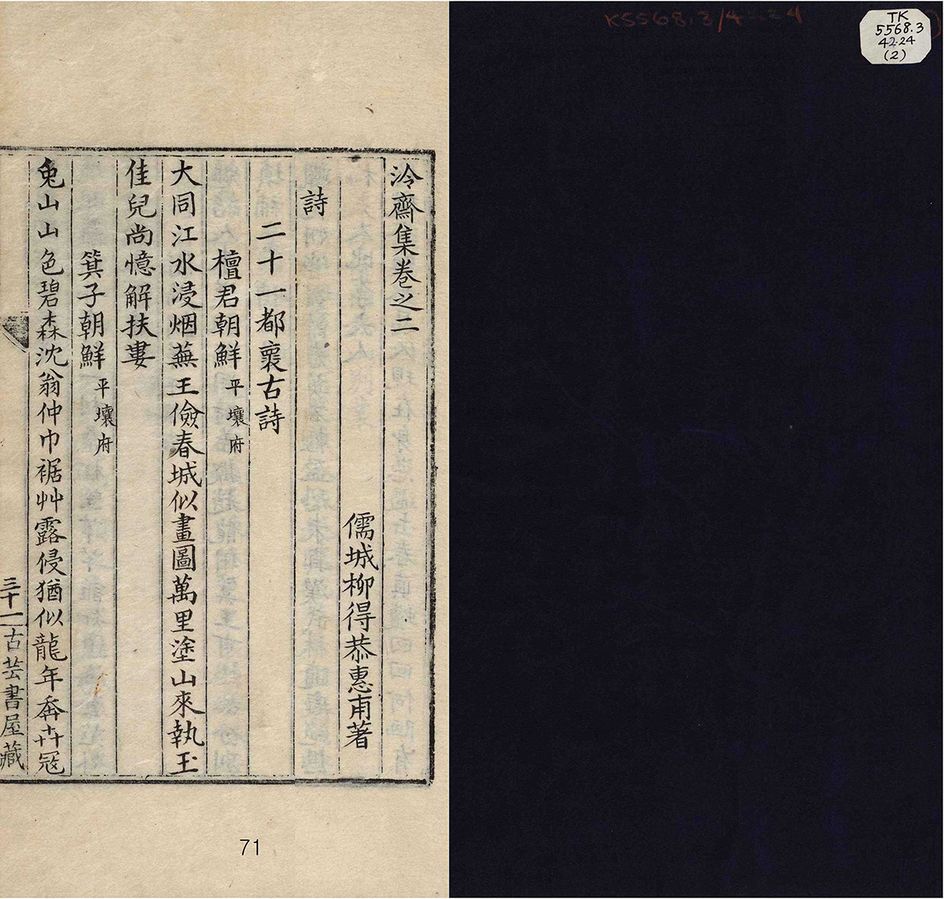 TK
5568.3
4224
(2)
泠齋集卷之二
儒城柳得恭惠甫著
詩
二十一都褱古詩
檀君朝鮮 平壤府
大同江水浸烟蕪王儉春城似畫圖萬里塗山來執玉
佳兒尚憶解扶婁
箕子朝鮮 平壤府
兎山山色碧森沈翁仲巾裾艸露侵猶似龍年奔卉冦
三十一 古芸書屋藏
71